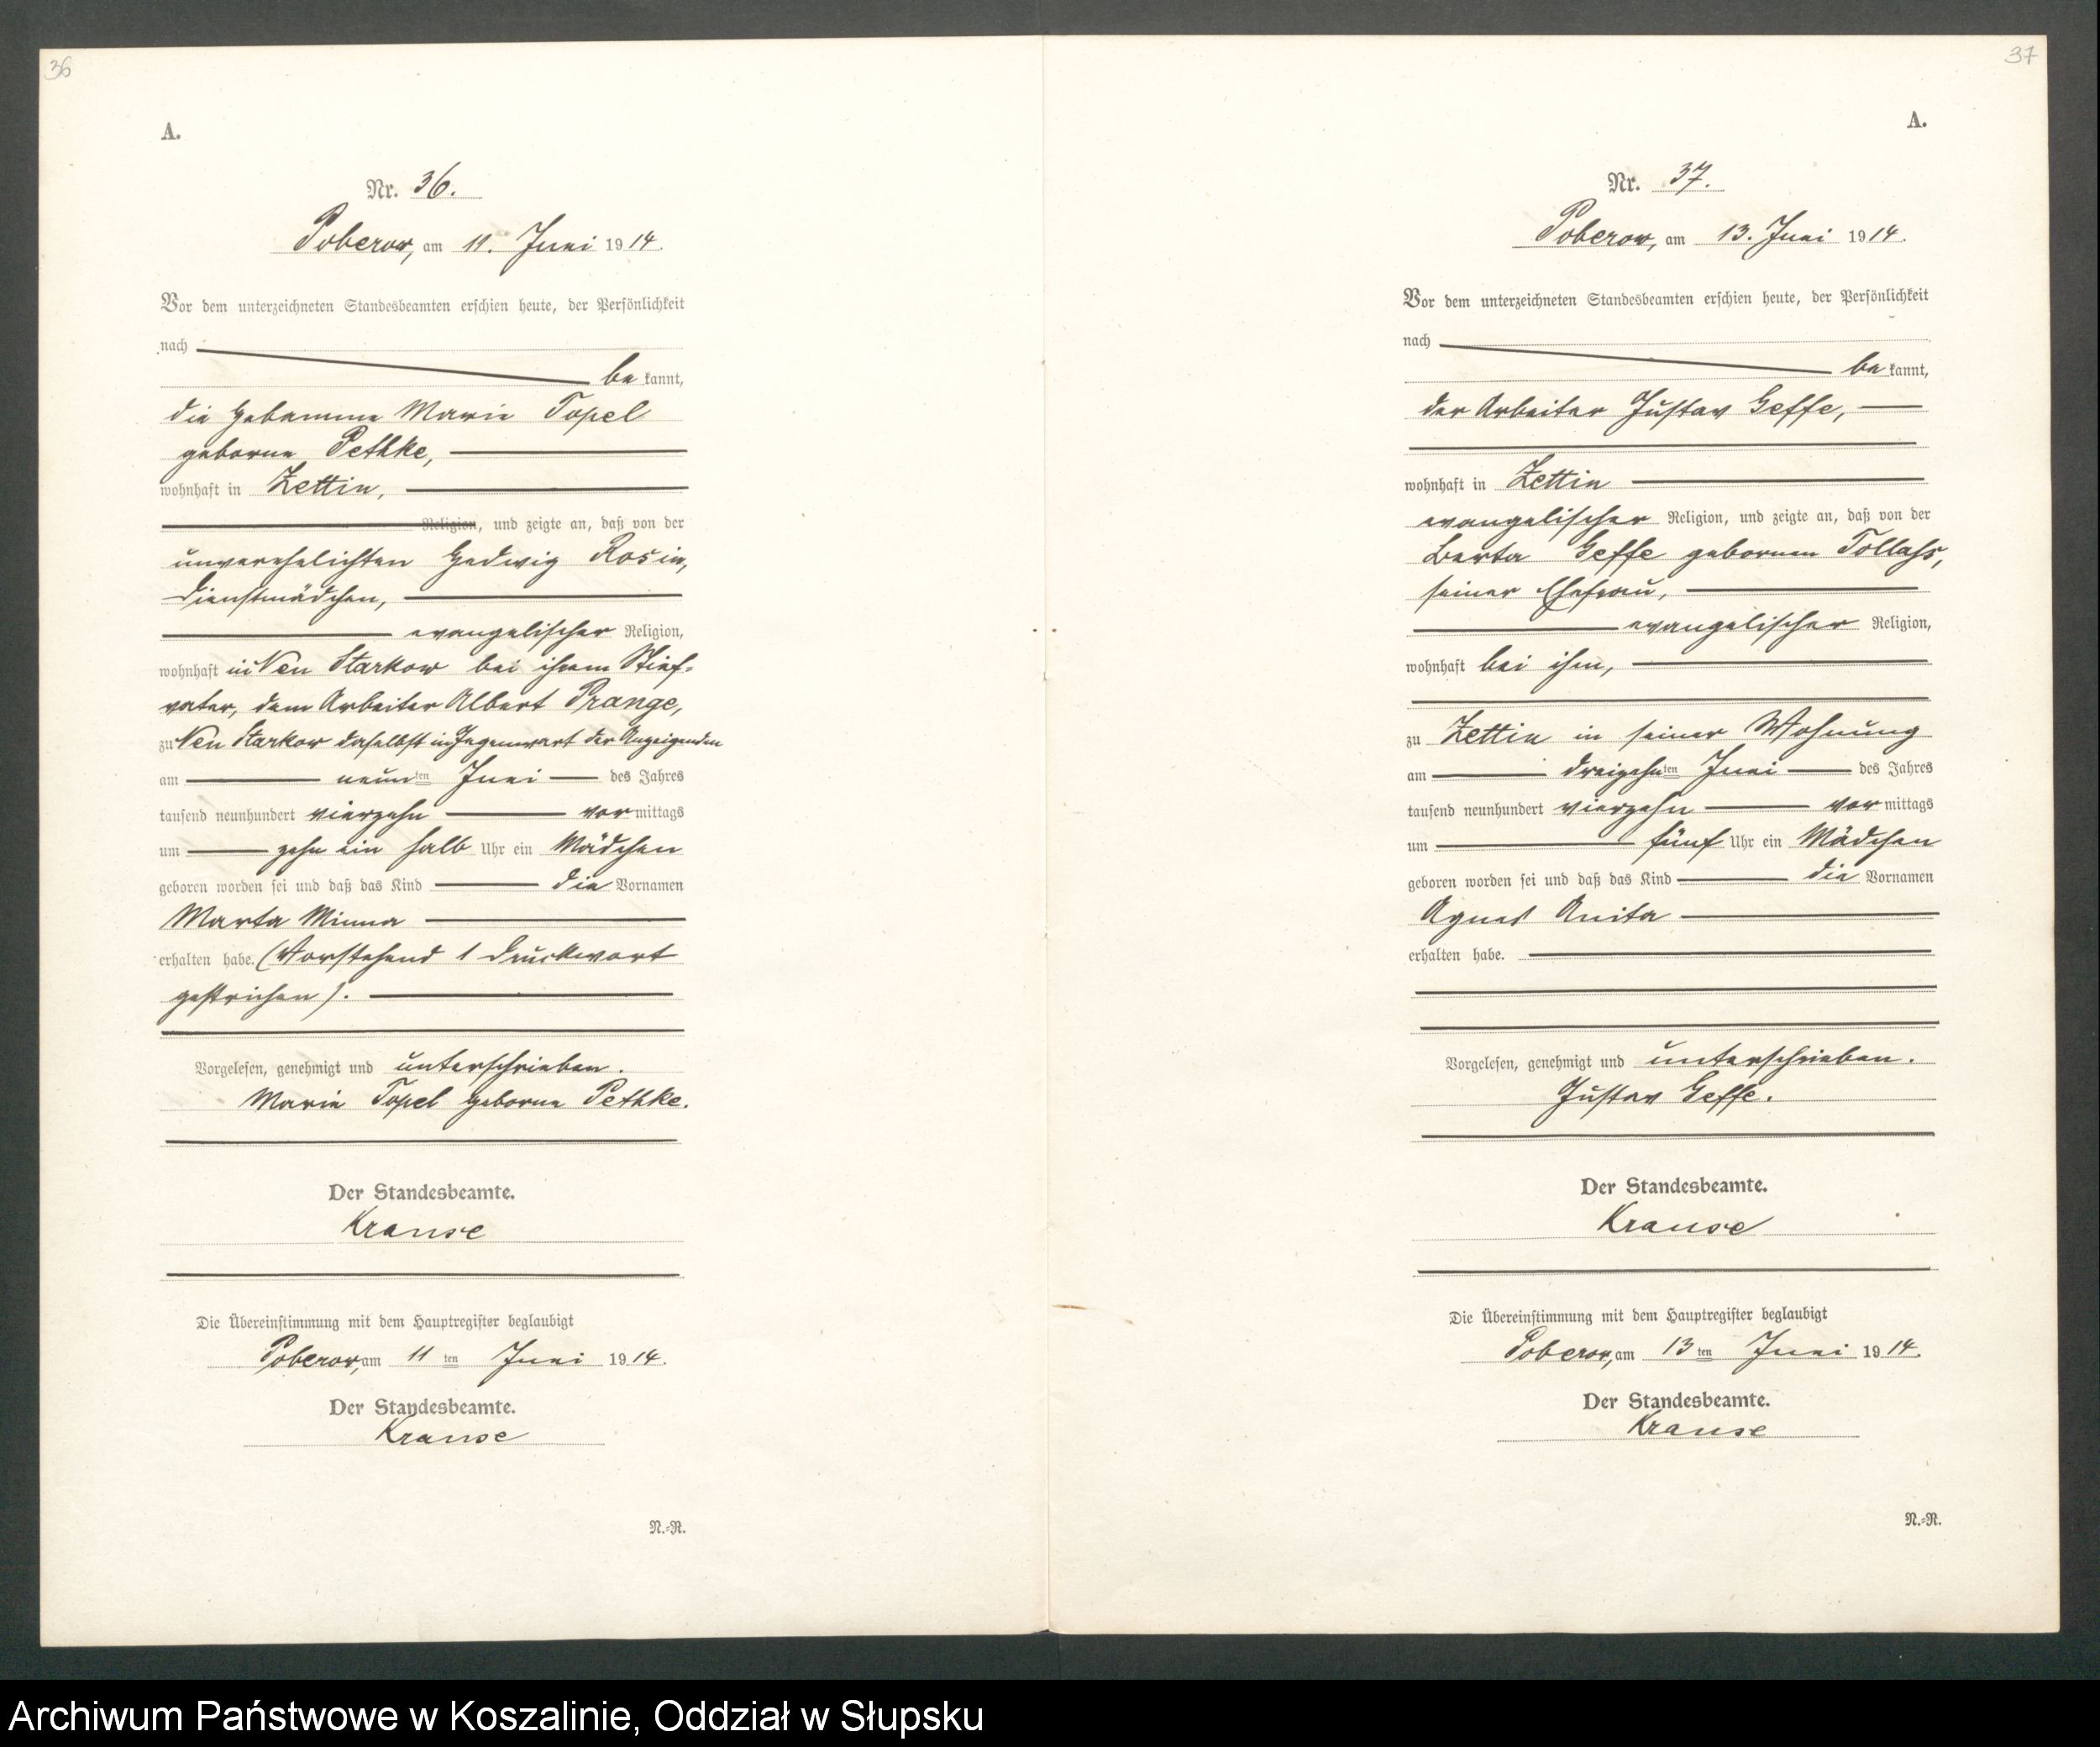 36
A.
Nr. 36.
Poberow, am 11. Juni 1914.
Vor dem unterzeichneten Standesbeamten erschien heute, der Persönlichkeit
nach
bekannt,
die Hebamme Marie Topel
geborne Pethke,
wohnhaft in Zettin,
Religion, und zeigte an, daß von der
unverehelichten Hedwig Rosin,
Dienstmädchen,
evangelischer Religion,
wohnhaft in Neu Starkow bei ihrem Stief-
vater, dem Arbeiter Albert Prange,
zu Neu Starkow daselbst in Gegenwart der Anzeigenden
am neunten Juni des Jahres
tausend neunhundert vierzehn vormittags
um zehn ein halb Uhr ein Mädchen
geboren worden sei und daß das Kind die Vornamen
Marta Minna
erhalten habe. (Vorstehend 1 Druckwort
gestrichen).
Vorgelesen, genehmigt und unterschrieben.
Marie Topel geborne Pethke.
Der Standesbeamte.
Krause
Die Übereinstimmung mit dem Hauptregister beglaubigt
Poberow, am 11ten Juni 1914.
Der Standesbeamte.
Krause
N.-R.
37
A.
Nr. 37.
Poberow, am 13. Juni 1914.
Vor dem unterzeichneten Standesbeamten erschien heute, der Persönlichkeit
nach
bekannt,
der Arbeiter Gustav Geffe,
wohnhaft in Zettin
evangelischer Religion, und zeigte an, daß von der
Berta Geffe gebornen Tollass,
seiner Ehefrau,
evangelischer Religion,
wohnhaft bei ihm,
zu Zettin in seiner Wohnung
am dreizehnten Juni des Jahres
tausend neunhundert vierzehn vormittags
um fünf Uhr ein Mädchen
geboren worden sei und daß das Kind die Vornamen
Agnes Anita
erhalten habe.
Vorgelesen, genehmigt und unterschrieben.
Gustav Geffe.
Der Standesbeamte.
Krause
Die Übereinstimmung mit dem Hauptregister beglaubigt
Poberow, am 13ten Juni 1914.
Der Standesbeamte.
Krause
N.-R.
Archiwum Państwowe w Koszalinie, Oddział w Słupsku